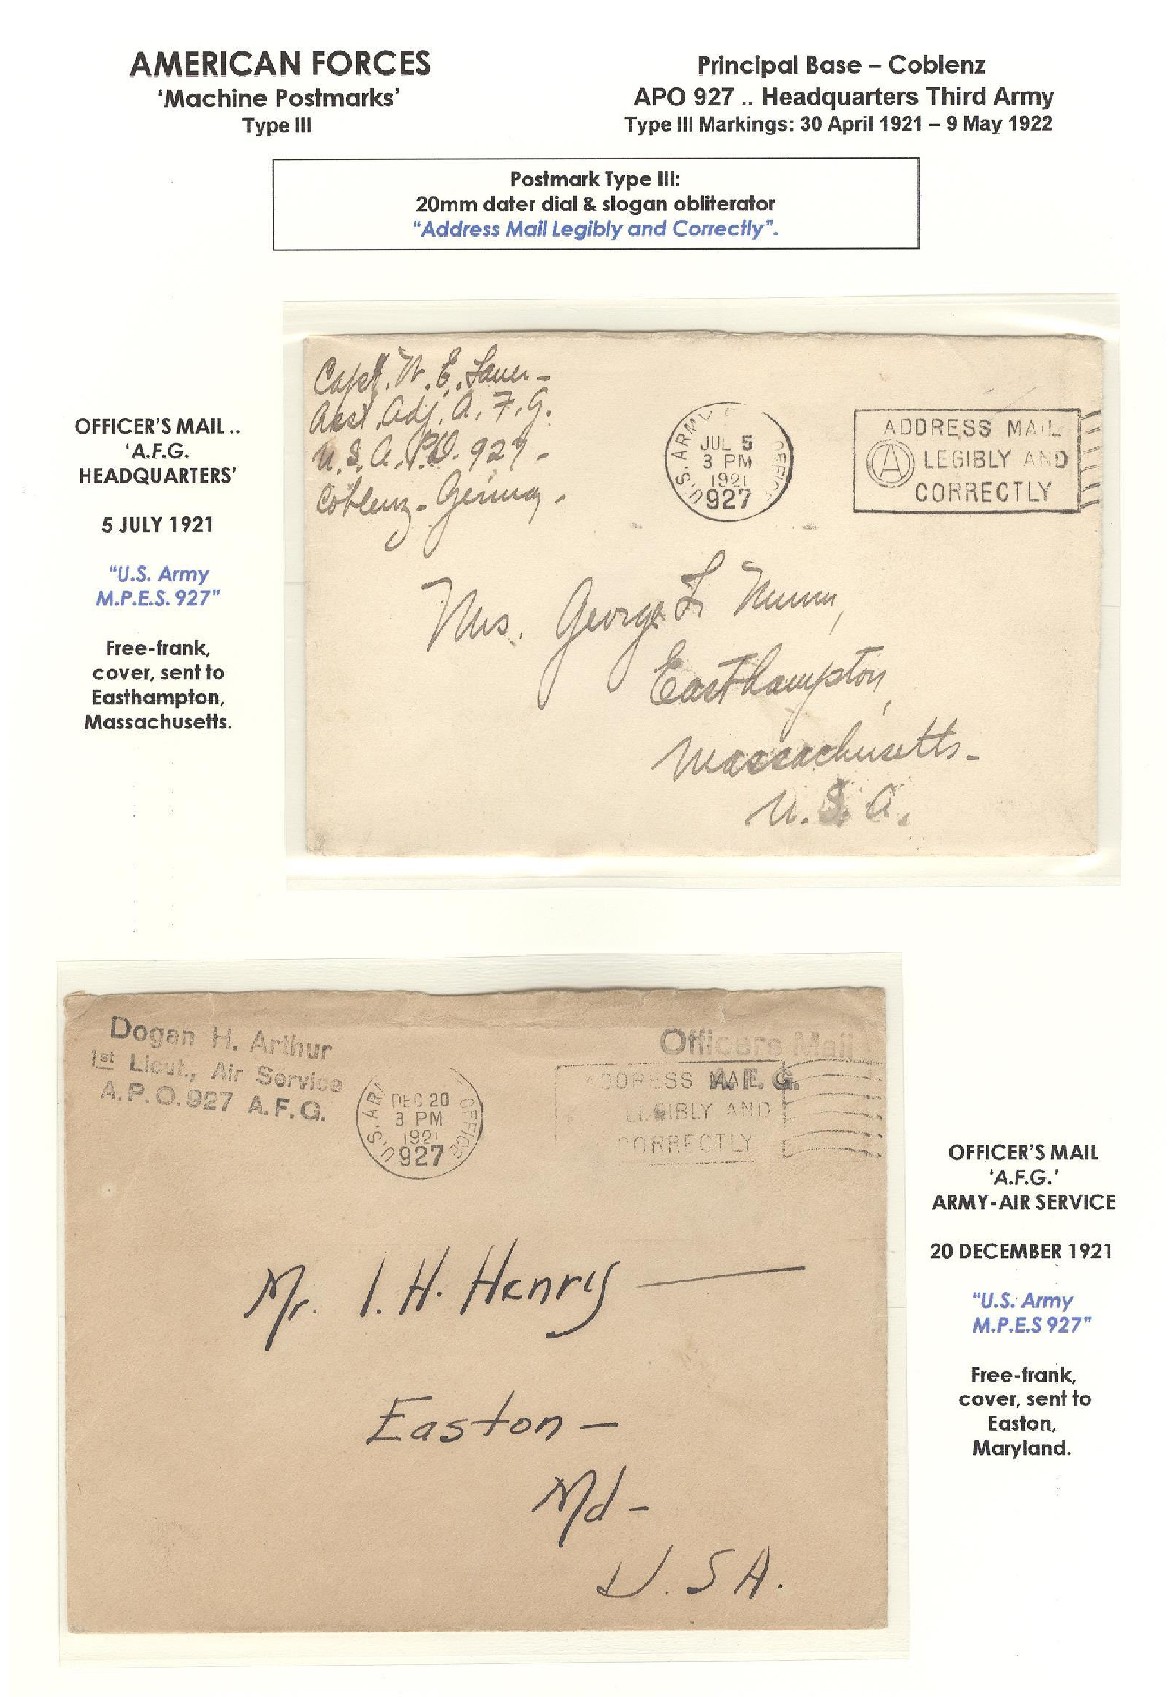 AMERICAN FORCES
'Machine Postmarks'
Type III
Principal Base – Coblenz
APO 927 .. Headquarters Third Army
Type III Markings: 30 April 1921 – 9 May 1922
Postmark Type III:
20mm dater dial & slogan obliterator
"Address Mail Legibly and Correctly".
OFFICER'S MAIL ..
'A.F.G.
HEADQUARTERS'
5 JULY 1921
"U.S. Army
M.P.E.S. 927"
Free-frank,
cover, sent to
Easthampton,
Massachusetts.
Capt. W. E. Lauer –
Asst. Adj. A. F. G.
U. S. A. P.O. 927 –
Coblenz – Germany.
U.S. ARMY OFFICE
JUL 5
3 PM
1921
927
ADDRESS MAIL
A LEGIBLY AND
CORRECTLY
Mrs. George L.
Easthampton,
Massachusetts –
U. S. A.
Dogan H. Arthur
1st Lieut., Air Service
A. P. O. 927 A. F. G.
Officers Mail
A. F. G.
U.S. AR OFFICE
DEC 20
3 PM
1921
927
ADDRESS MAIL
LEGIBLY AND
CORRECTLY
Mr. I. H. Henry
Easton –
Md –
U. S A.
OFFICER'S MAIL
'A.F.G.'
ARMY-AIR SERVICE
20 DECEMBER 1921
"U.S. Army
M.P.E.S 927"
Free-frank,
cover, sent to
Easton,
Maryland.